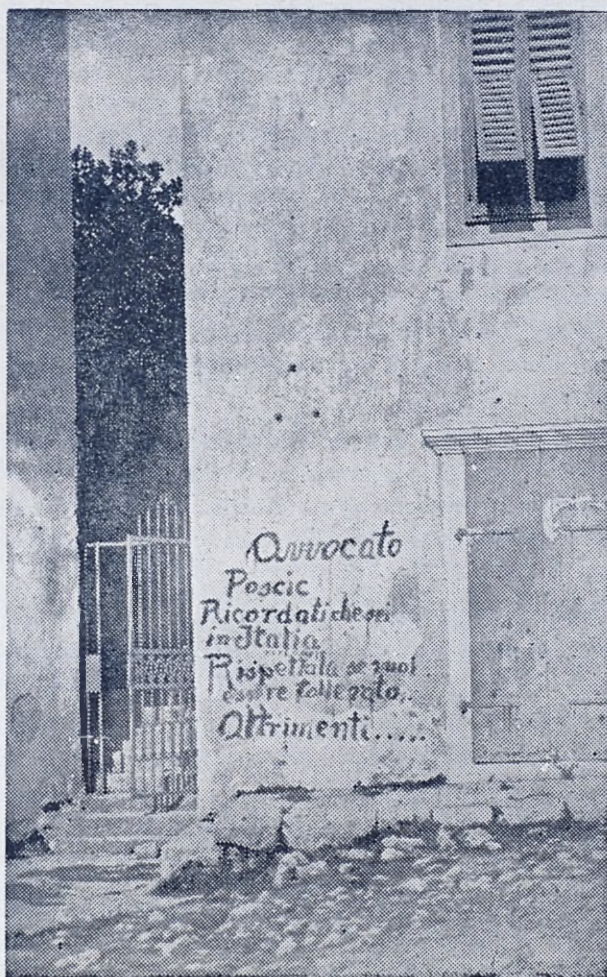 Avvocato
Poscic
Ricordati che sei
in Italia
Rispettala se vuoi
essere tollerato..
Altrimenti.....